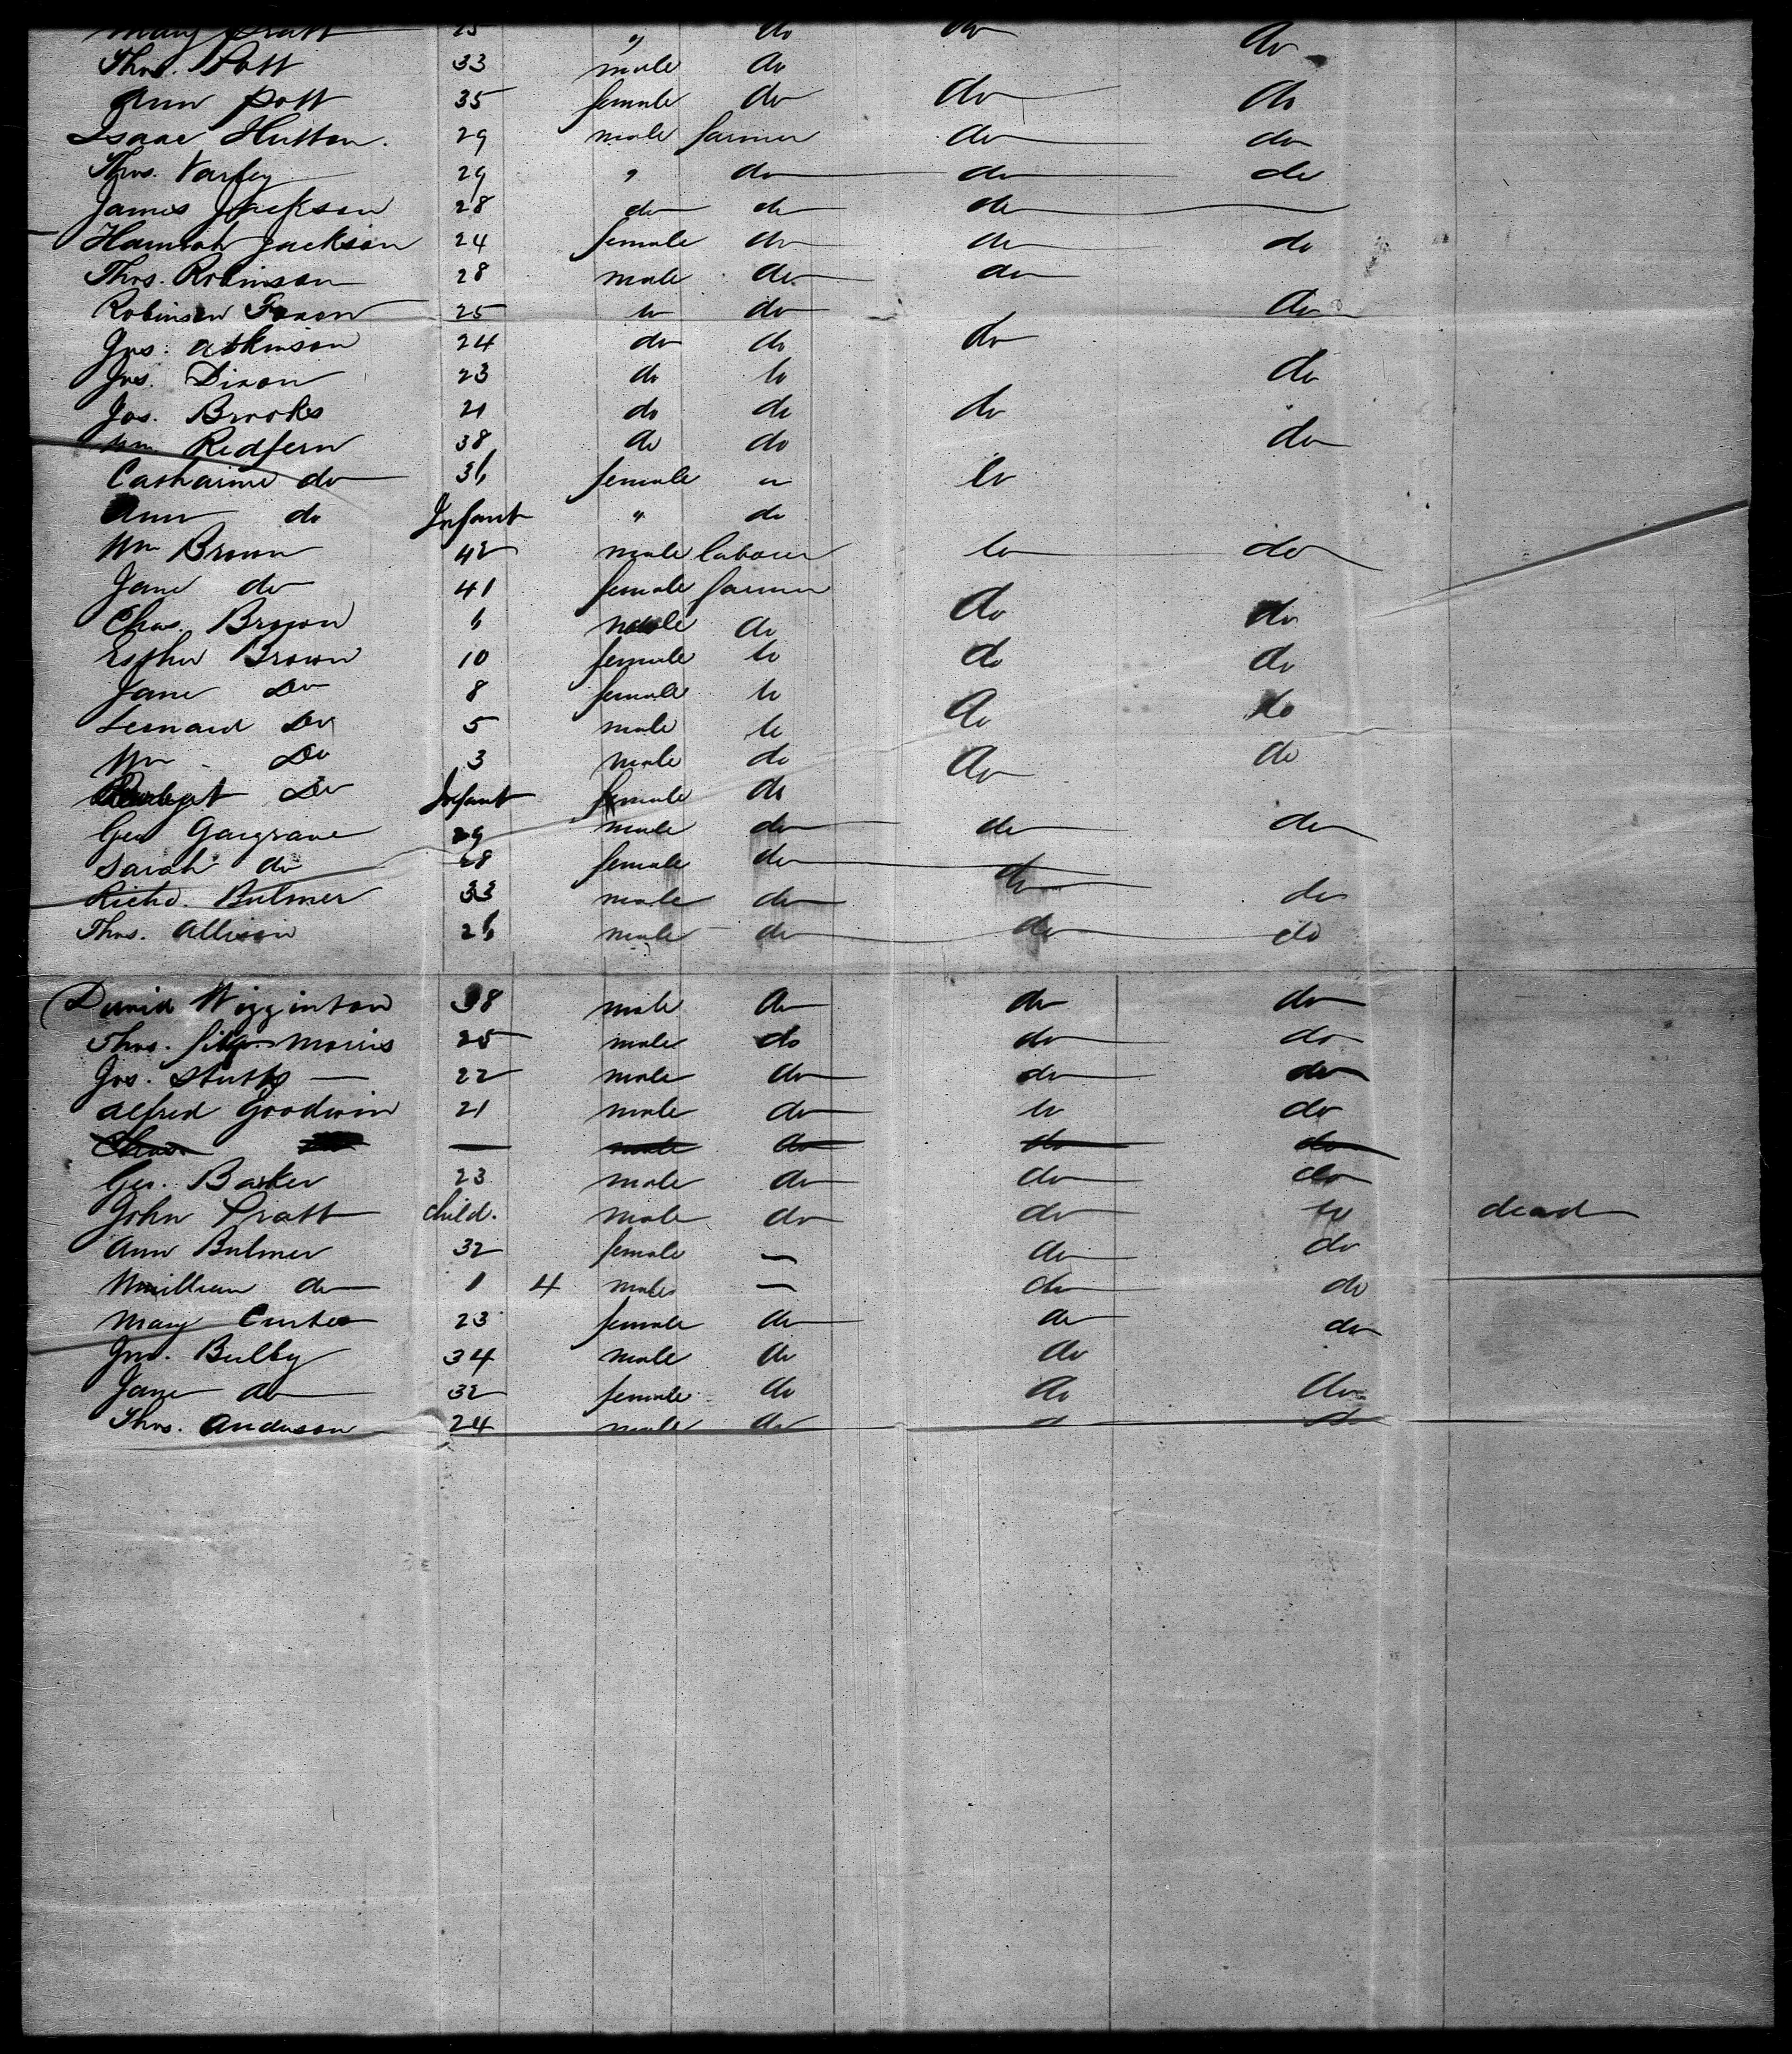 Mary Pratt 25 " do do do
Thos. Pott 33 male do
Ann Pott 35 female do do do
Isaac Hutton. 29 male farmer do do
Thos. Varley 29 " do do do
James Jackson 28 do do do
Hannah Jackson 24 female do do do
Thos. Robinson 28 male do do
Robinson Foxon 25 do do do
Jos. Atkinson 24 do do do
Jos. Dixon 23 do do do
Jos. Brooks 21 do do do
Wm Redfern 38 do do do
Catharine do 36 female " do
Ann do Infant " do
Wm Brown 42 male labourer do do
Jane do 41 female farmer
Chas. Brown 6 male do do do
Esther Brown 10 female do do do
Jane Do 8 female do
Leonard Do 5 male do do do
Wm Do 3 male do do do
Do Infant female do
Geo Gargrave 29 male do do do
Sarah do 28 female do
Richd. Bulmer 33 male do do do
Thos. Allison 26 male do do do
David Wigginton 38 male do do do
Thos. Morris 25 male do do do
Jos. Stubbs 22 male do do do
Alfred Goodwin 21 male do do do
male do do do
Geo. Barker 23 male do do do
John Pratt child. male do do do dead
Ann Bulmer 32 female — do do
William do 1 4 male — do do
Mary Curtis 23 female do do do
Jno. Bulby 34 male do do
Jane do 32 female do do do
Thos. Anderson 24 male do do do